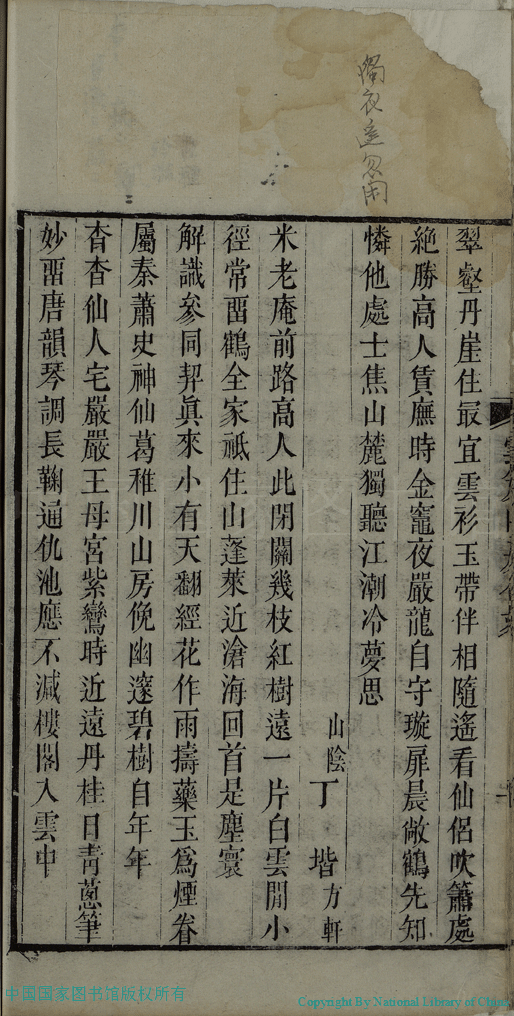 翠壑丹崖住最宜雲衫玉帶伴相隨遙看仙侶吹簫處
絶勝高人賃廡時金竈夜嚴龍自守璇扉晨敞鶴先知
憐他處士焦山麓獨聽江潮冷夢思
山陰丁堦方軒
米老庵前路高人此閉關幾枝紅樹遠一片白雲閒小
徑常畱鶴全家祗住山蓬萊近滄海回首是塵寰
解識參同契眞來小有天翻經花作雨擣藥玉爲煙眷
屬秦蕭史神仙葛稚川山房俛幽邃碧樹自年年
杳杳仙人宅嚴嚴王母宮紫鸞時近遠丹桂日靑蔥筆
妙畱唐韻琴調長鞠通仇池應不減樓閣入雲中
中国国家图书馆版权所有
Copyright By National Library of China